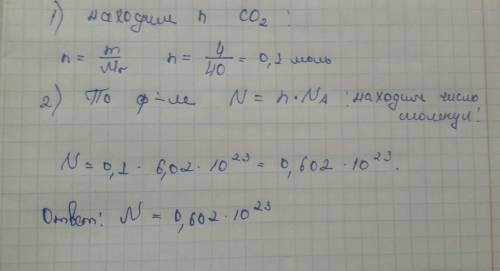 1) находим n CO₂ :
n = m/Mr n = 4/40 = 0,1 моль
2) По ф-ле N = n · NA : находим число
молекул:
N = 0,1 · 6,02 · 10²³ = 0,602 · 10²³.
Ответ: N = 0,602 · 10²³